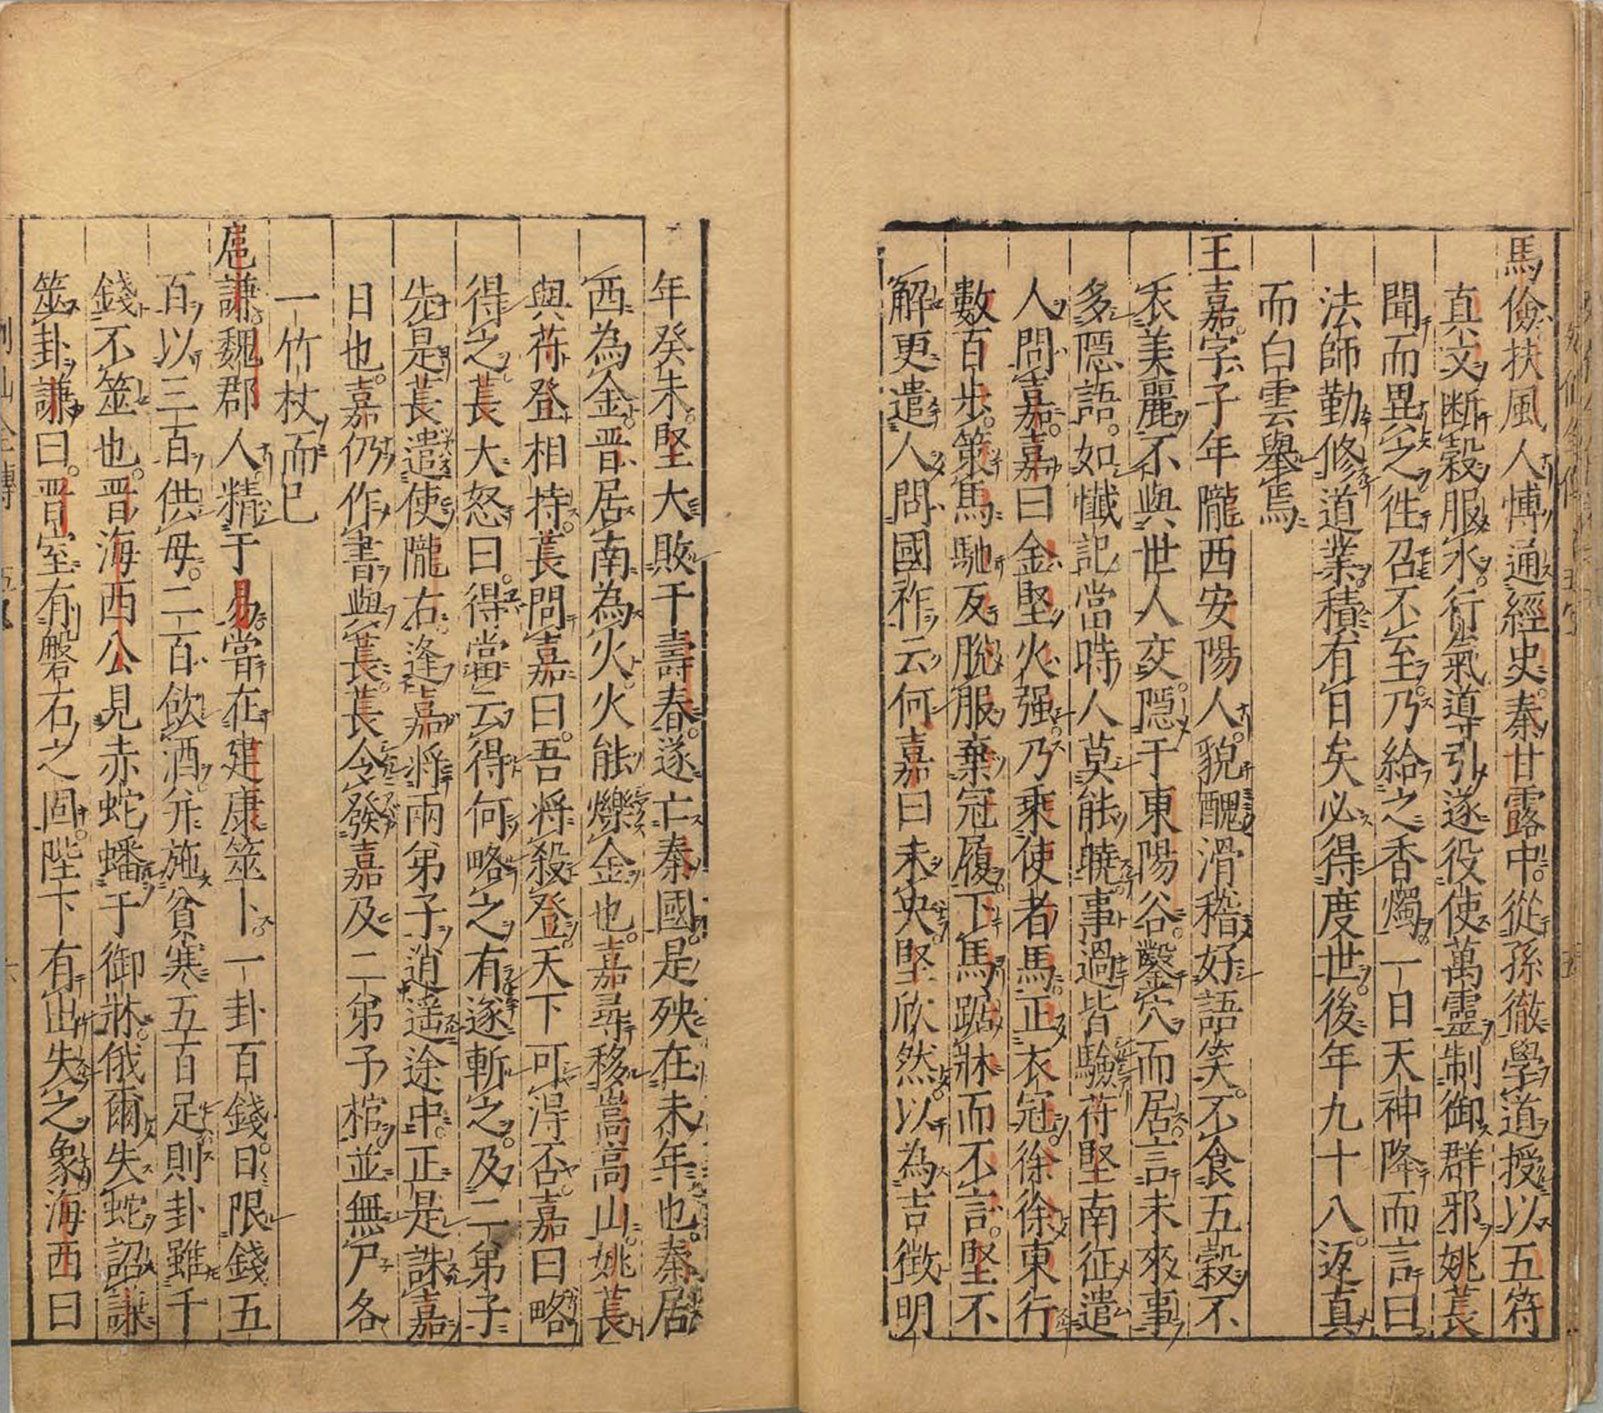 馬儉扶風人博通經史秦甘露中從孫徹學道授以五符
真文斷穀服水行氣導引遂役使萬靈制御群邪姚萇
聞而異之徃召不至乃給之香燭一日天神降而言曰
法師勤修道業積有日矣必得度世後年九十八返真
而白雲舉焉
王嘉字子年隴西安陽人貌醜滑稽好語笑不食五穀不
衣美麗不與世人交隱于東陽谷鑿穴而居言未來事
多隱語如懺記當時人莫能曉事過皆驗苻堅南征遣
人問嘉嘉曰金堅火强乃乘使者馬正衣冠徐徐東行
數百步策馬馳反脫服棄冠履下馬踞牀而不言堅不
解更遣人問國祚云何嘉曰未央堅欣然以為吉徴明
年癸未堅大敗于壽春遂亡秦國是殃在未年也秦居
西為金晋居南為火火能爍金也嘉尋移嵩高山姚萇
與苻登相持萇問嘉曰吾將殺登天下可淂否嘉曰略
得之萇大怒曰得當云得何略之有遂斬之及二弟子
先是萇遣使隴右逢嘉將兩弟子逍遥途中正是誅嘉
日也嘉仍作書與萇萇令發嘉及二弟子棺並無尸各
一竹杖而已
扈謙魏郡人精于易當在建康筮卜一卦百錢日限錢五
百以三百供毋二百飲酒并施貧寒五百足則卦雖千
錢不筮也晋海西公見赤蛇蟠于御牀俄爾失蛇詔謙
筮卦謙曰晋室有磐石之固陛下有出失之象海西曰